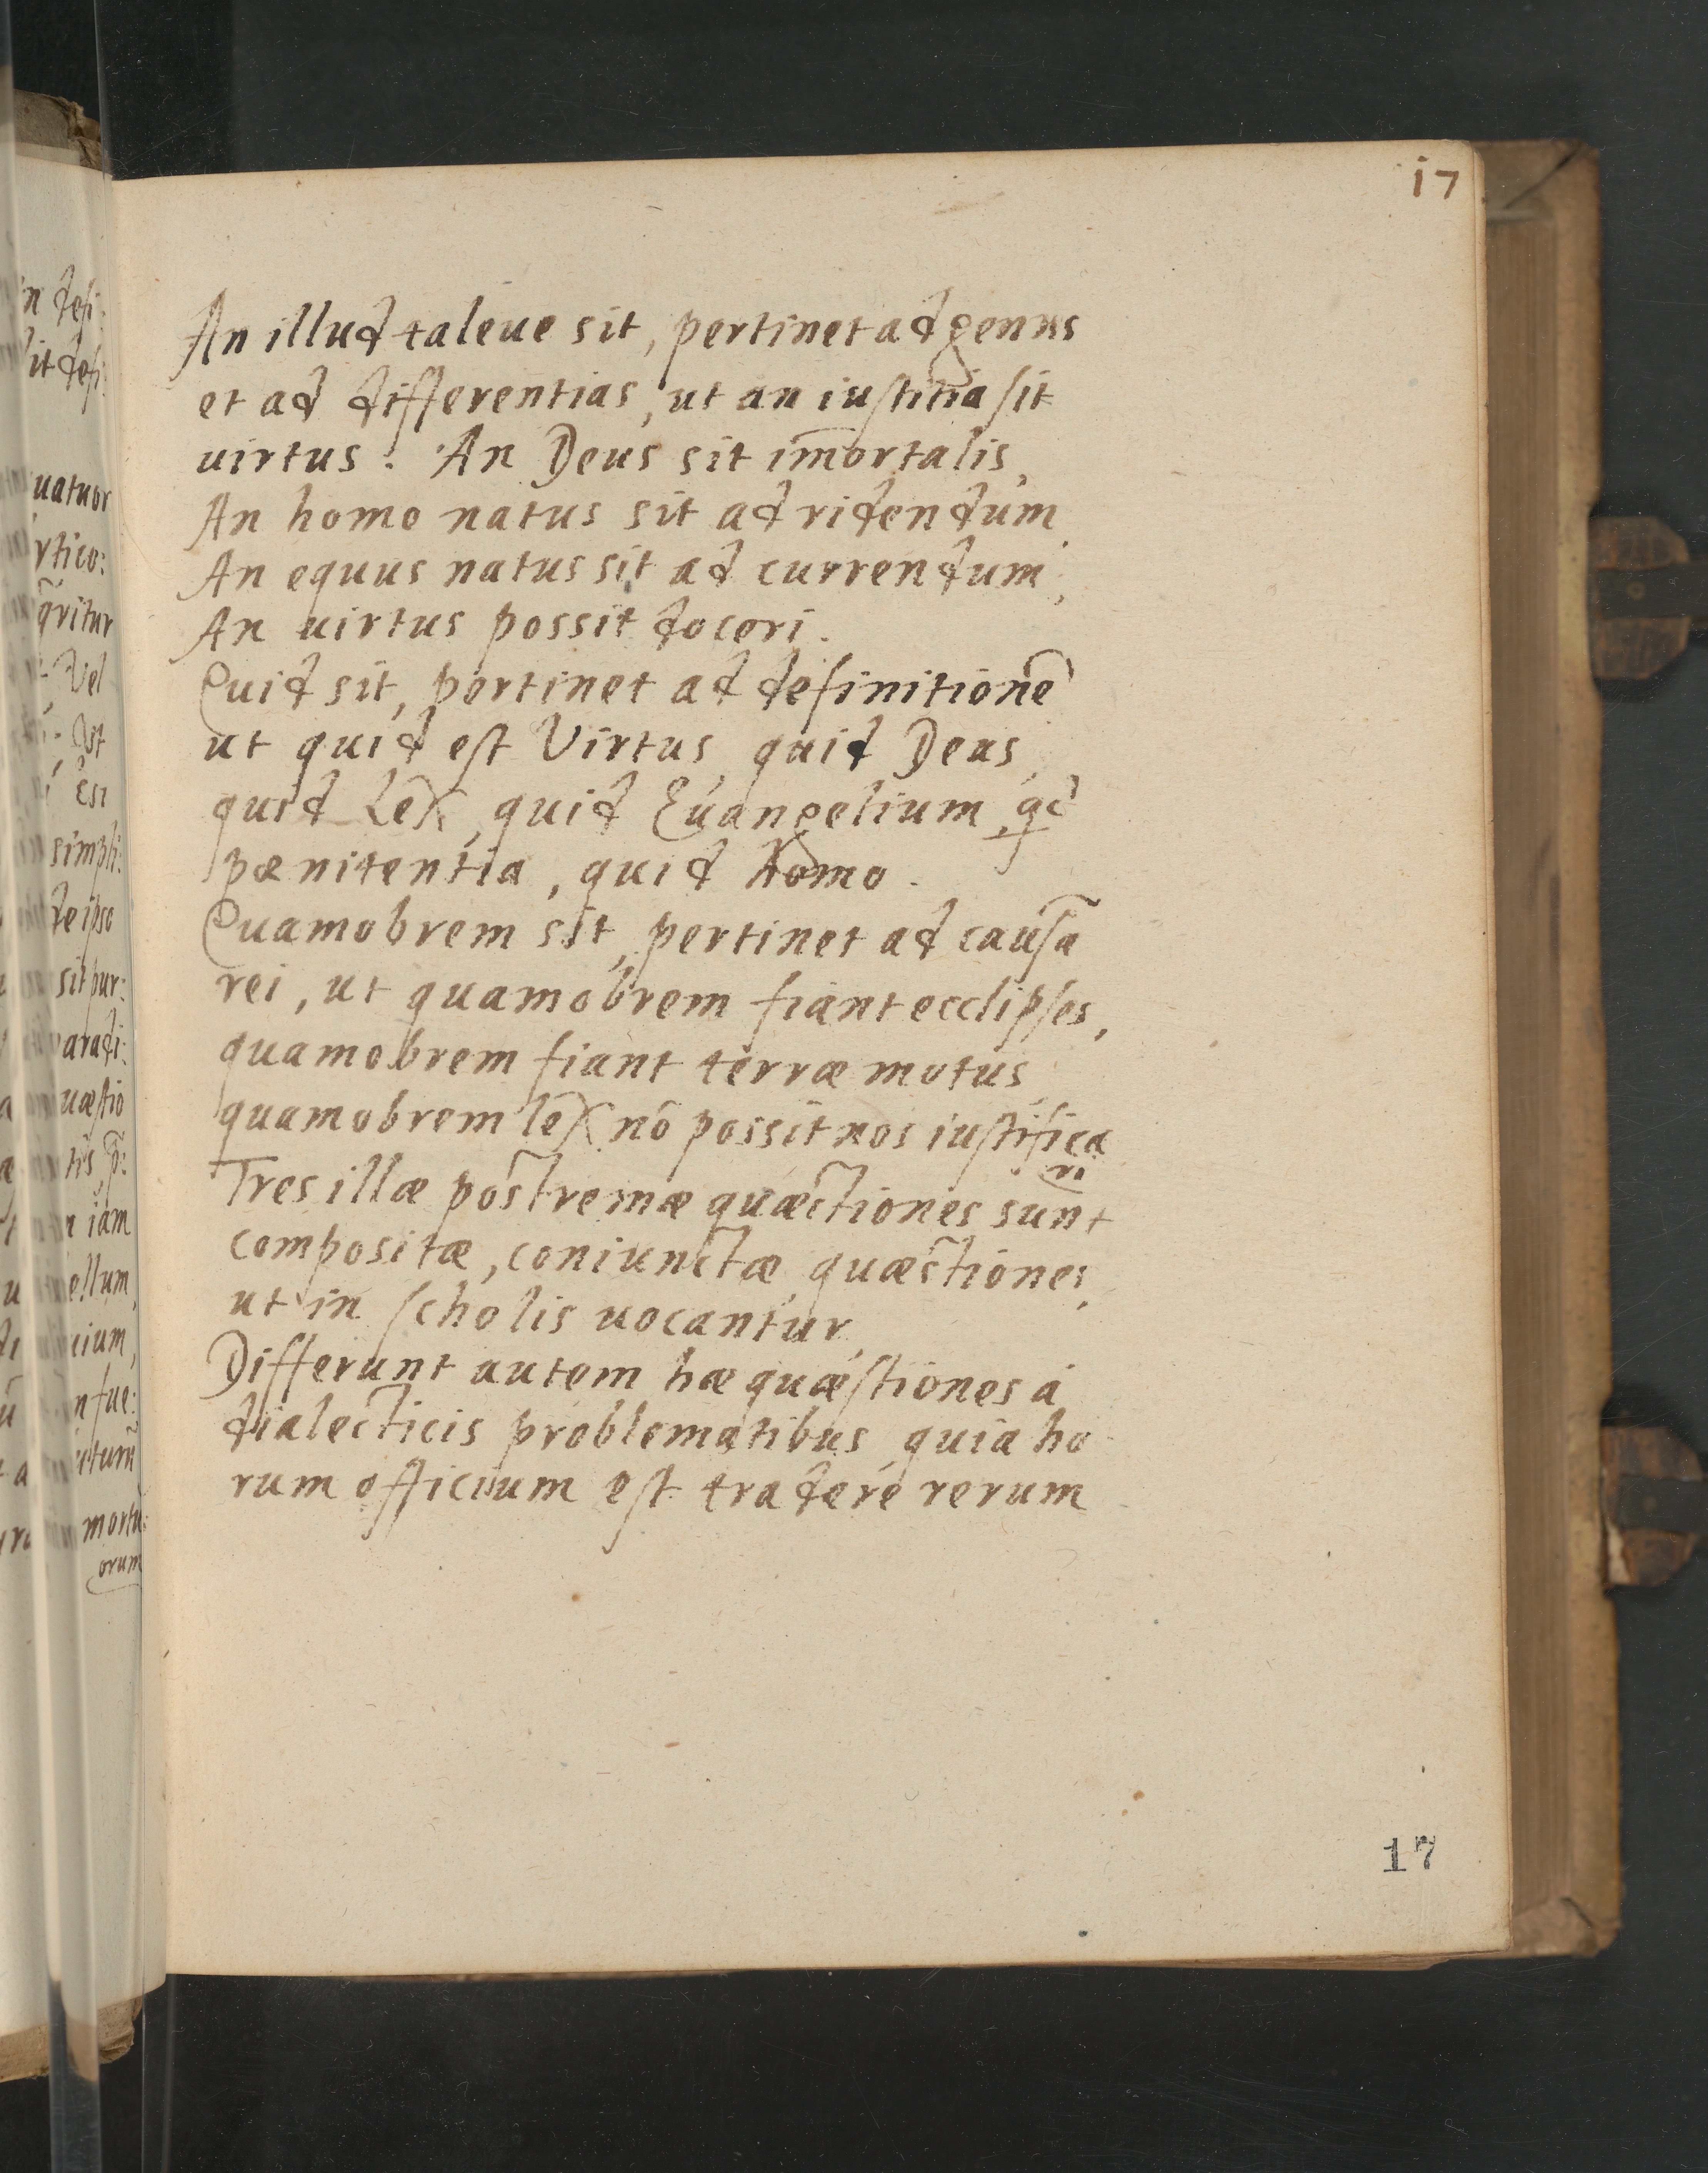 i7
An illud taleue sit, pertinet ad genus
et ad differentias, ut an iustitia sit
uirtus. An Deus sit im̄ortalis,
An homo natus sit ad ridendum,
An equus natus sit ad currendum,
An uirtus possit doceri.
Quid sit, pertinet ad definitionē
ut quid est Virtus, quid Deus,
quid Lex, quid Euangelium, qd
pœnitentia, quid homo.
Quamobrem sit, pertinet ad causā
rei, ut quamobrem fiant ecclipses,
quamobrem fiant terræ motus,
quamobrem lex nō possit nos iustifica
re
Tres illæ postremæ quæstiones sunt
compositæ, coniunctæ quæstiones,
ut in scholis uocantur,
Differunt autem hæ quæstiones á
dialecticis problematibus, quia ho
rum officium est tradere rerum
17
uatuor
rtico:
q̄ritur
Vel
simpli:
de ipso
sit pur:
paradi:
uæstio
iam
ellum,
cium,
mortu:
orum